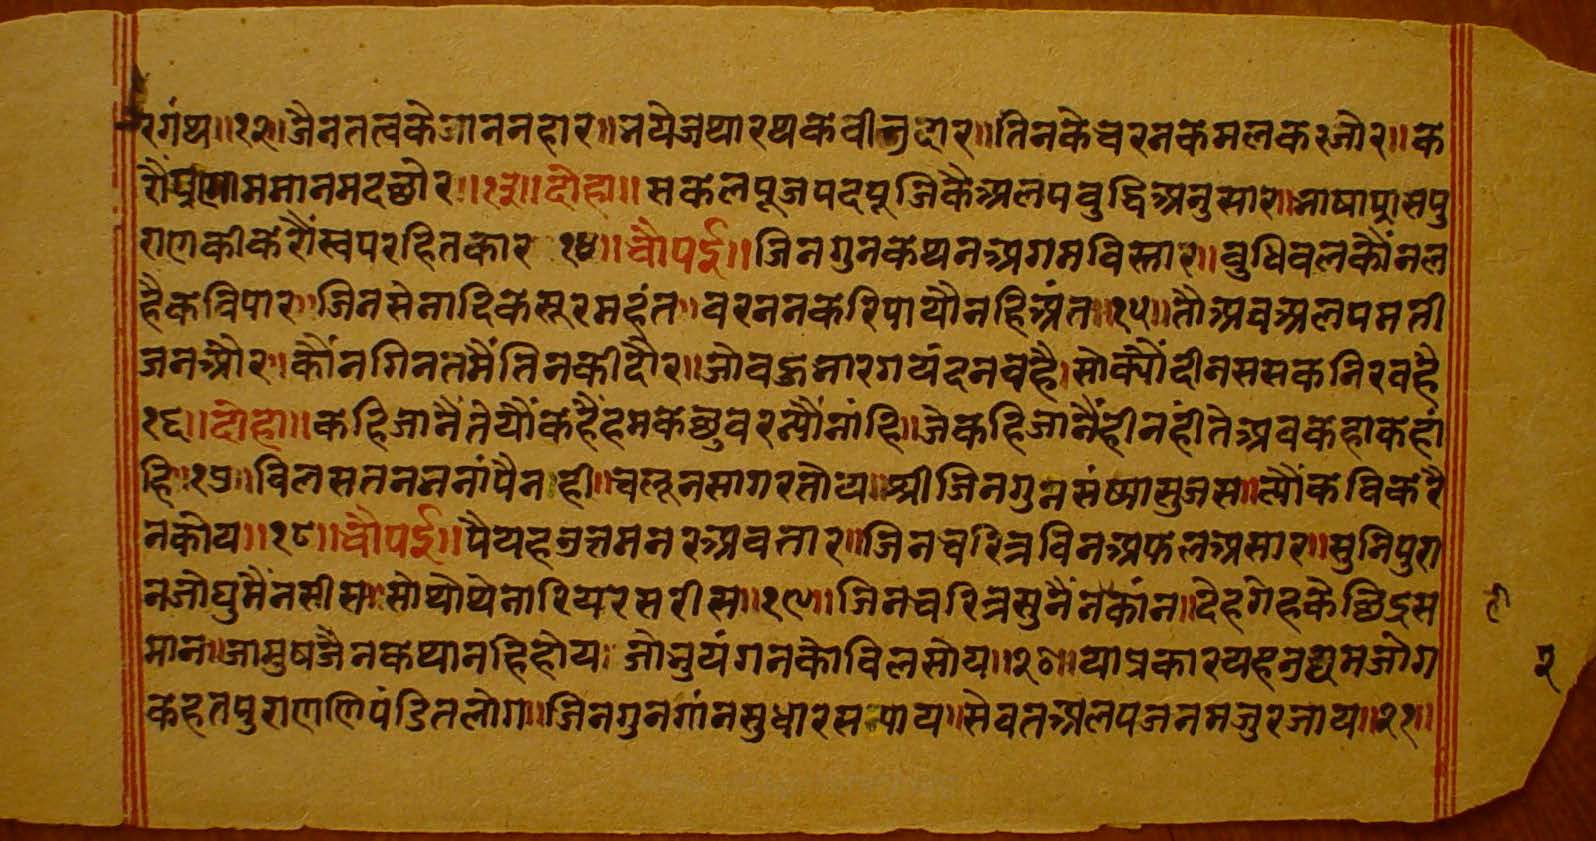 रगंथ॥१२॥जैनतत्वकेजाननहार॥भयेजथारथकेवीउदार॥तिनकेचरनकमलकरजोर॥क
रौंप्रणाममानमदछोर॥१३॥दोहा॥सकलपूजपदपूजिकैअलपबुद्धिअनुसार॥भाषापार्सपु
राणकीकरौंस्वपरहितकार१४॥चौपई॥जिनगुनकथनअगमविस्तार॥वुधिवलकौंनल
हैकविपार॥जिनसेनादिकसूरमहंत॥वरननकरिपायौनहिअंत॥१५॥तौअवअलपमती
जनऔर॥कौंनगिनतमैंतिनकीदौर॥जोवहुभारगयंदनवहै॥सोक्यौंदीनससकनिरवहै
१६॥दोहा॥कहिजानैंतेयौंकहैंहमकछुवरन्यौंनांहि॥जेकहिजानैंहीनहींतेअवकहाकहां
हि॥१७॥विलसतनभनांपैनही॥चलूनसागरतोय॥श्रीजिनगुनसंष्यासुजस॥त्यौंकविकरै
नकोय॥१८॥चौपई॥पैयहउत्तमनरअवतार॥जिनचरित्रविनअफलअसार॥सुनिपुरा
नजोघुमैंनसीस॥सोथोथेनारियरसरीस॥१९॥जिनचरित्रसुनैंनकांन॥देहगेहकेछिद्रस
मान॥जामुषजैनकथानहिहोय॥जोभुयंगनकोविलसोय॥२०॥याप्रकारयहउद्यमजोग
कहतपुराणणिपंडितलोग॥जिनगुनगांनसुधारसन्पाय॥सेवतअलपजनमजुरजाय॥२१॥
ती
२